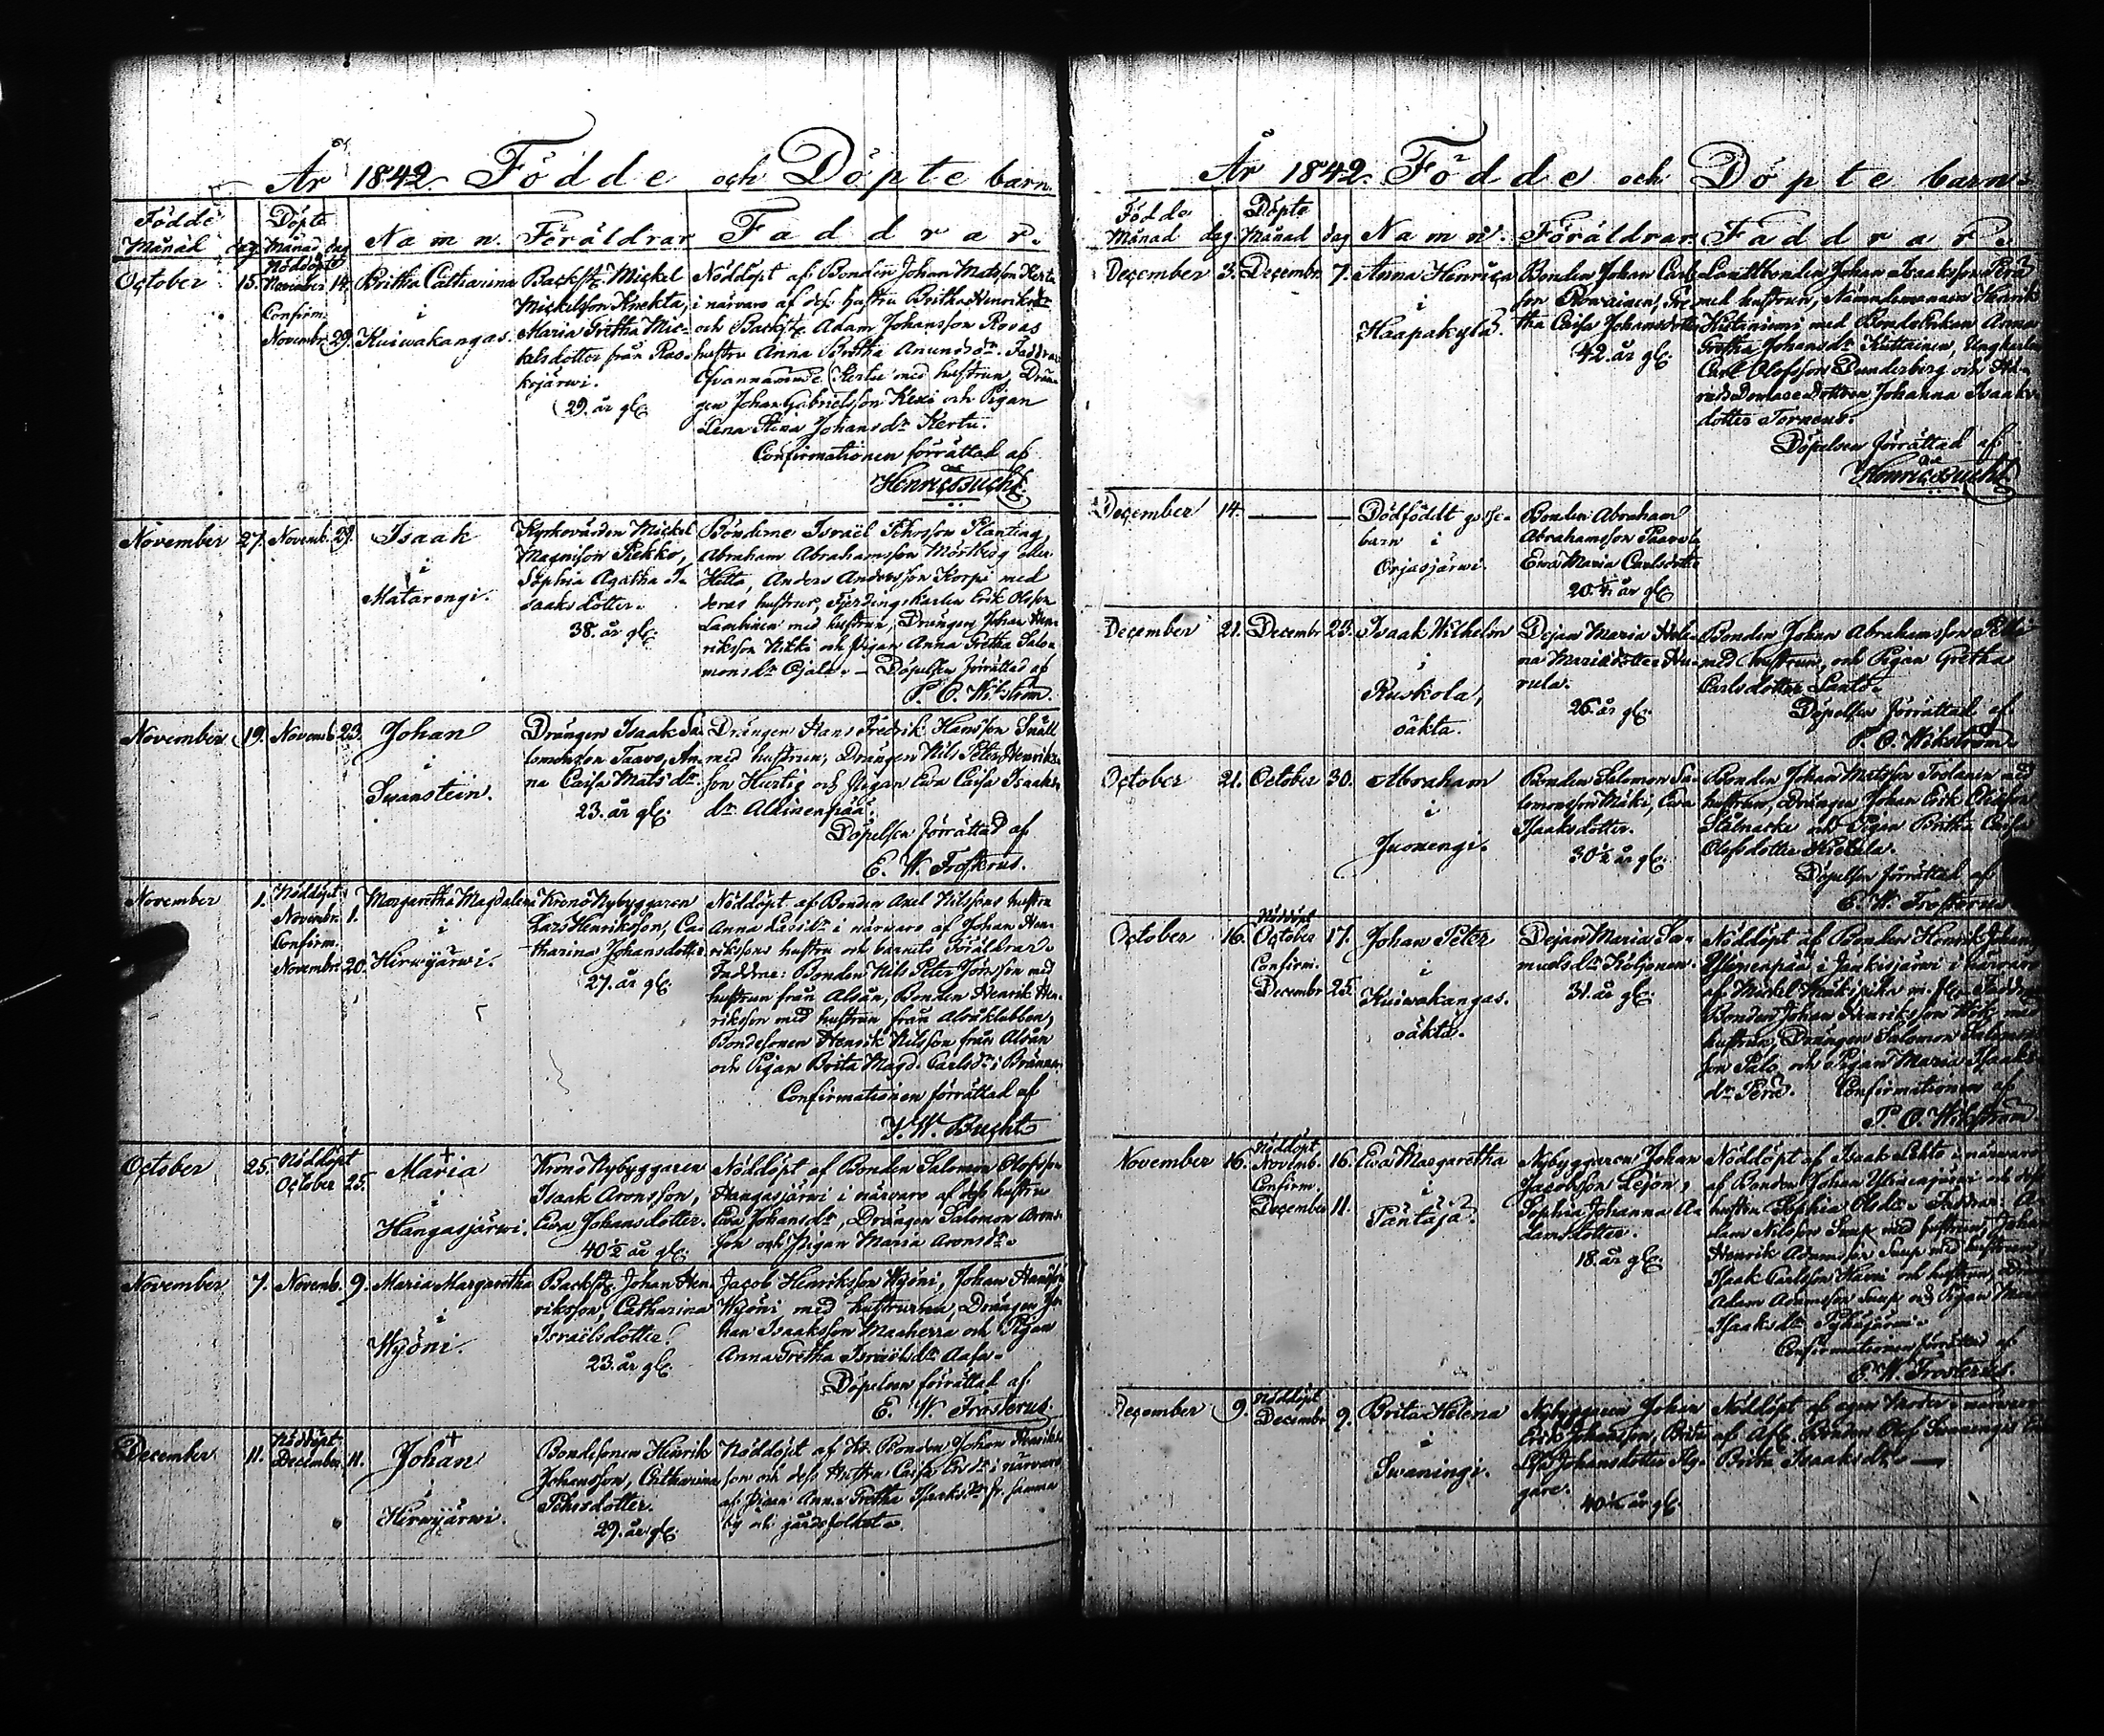 År 1842 Födde och Döpte barn.
Födde Månad dag Döpte Månad dag Namn. Föräldrar Faddrar.
October 15. Nöddöpt November 14. Confirm. Novembr 29.
Britha Catharina
i
Kuiwakangas.
Backst. Mickel
Mickelsson Knekta,
Maria Gretha Mic-
kelsdotter från Ras-
kojärwi.
29. år gl.
Nöddöpt af Bonden Johan Matsson Kertu
i närvaro af dess hustru Britha Henriksdr
och Backst. Adam Johansson Rovas
hustru Anna Britha Anundsdr. Faddrar
Ofvannämnde Kertu med hustrun, Drän-
gen Johan Gabrielsson Kexi och Pigan
Lena Stina Johansdr Kertu.
Confirmationen förrättad af
Henric Bucht.
November 27. Novemb. 29.
Isaak
i
Matarengi.
Kyrkovärden Mickel
Magnisson Piekko,
Sophia Agatha I-
saaksdotter.
38. år gl.
Bönderne Israel Planting,
Abraham Abrahamsson Mörtberg eller
Hetta, Anders Andersson Korpi med
deras hustrur, Fjerdingskarlen Erik Olsson
Lamhinen med hustrun, Drängen Johan Hen-
riksson Nikki och Pigan Anna Gretha Salo-
monsdr Ojala. — Döpelsen förrättad af
P. O. Wikström.
November 19. Novemb. 23.
Johan
i
Swanstein.
Drängen Isaak Sa-
lomonsson Taavo, An-
na Caisa Matsdr
23. år gl.
Drängen Hans Fredrik Hansson Snäll
med hustrun, Drängen Nils Peter Henriks-
son Hurtig och Pigan Ewa Caisa Isaaks-
dr Alainenpää.
Döpelsen förrättad af
E. W. Frosterus.
November 1. Nöddöpt Novembr. 1. Confirm. Novembr 20.
Margaretha Magdalena
i
Hirwijärwi.
Krono Nybyggaren
Lars Henriksson, Ca-
tharina Johansdotter
27. år gl.
Nöddöpt af Bonden Axel Nilssons hustru
Anna Larsdr i närvaro af Johan Hen-
rikssons hustru och barnets Föräldrar.
Faddrar: Bonden Nils Peter Jönsson med
hustrun från Alsån, Bonden Henrik Hen-
riksson med hustrun från Alsåklubben,
Bondesonen Henrik Nilsson från Alsån
och Pigan Brita Magd. Carlsdr i Brännan
Confirmationen förrättad af
J. W. Bucht
October 25. Nöddöpt October 25.
+
Maria
i
Hangasjärwi.
Krono Nybyggaren
Isaak Aronsson,
Ewa Johansdotter.
40½ år gl.
Nöddöpt af Bonden Salomon Olofsson
Hangasjärwi i närvaro af dess hustru
Ewa Johansdr, Drängen Salomon Arons-
son och Pigan Maria Aronsdr.
November 7. Novemb. 9.
Maria Margaretha
i
Wyöni.
Backst. Johan Hen-
riksson, Catharina
Israelsdotter
23. år gl.
Jacob Henriksson Wyöni, Johan Hansson
Wyöni med hustrurna, Drängen Jo-
han Isaaksson Maaherra och Pigan
Anna Gretha Israelsdr Aasa.
Döpelsen förrättad af
E. W. Frosterus.
December 11. Nöddöpt December 11.
+
Johan
i
Hirwijärwi.
Bondesonen Henrik
Johansson, Catharina
29. år gl.
Nöddöpt af Bonden Johan Henriks-
son och dess Hustru Caisa Ersdr i närvaro
af Pigan Anna Gretha Isaaksdr fr. samma
by och gårdsfolket.
År 1842. Födde och Döpte barn.
Födde Månad dag Döpte Månad dag Namn. Föräldrar Faddrar.
December 3. Decembr. 7.
Anna Henrica
i
Haapakylä.
Bonden Johan Carls-
son Gre-
tha Caisa Johansdotter
42. år gl.
Landtbonden Johan Isaaksson Perä
med hustrun, Nämndemannen Henrik
Hietaniemi med Bondeenkan Anna
Gretha Johansdr Kuttainen, Ungkarlen
Carl Olofsson Dunderberg och
Dottren Johanna Isaaks-
dotter Torneus.
Döpelsen förrättad af
Henric Bucht.
December 14. — —
Dödfödt gosse-
barn i
Orjasjärwi.
Bonden Abraham
Abrahamsson Paavola
Ewa Maria Carlsdotter
20 år gl.
December 21. Decembr 25.
Isaak Wilhelm
i
Ruskola,
oäkta.
Dejan Maria Hele-
na Mariasdotter
26. år gl.
Bonden Johan Abrahamsson
med hustrun, och Pigan Gretha
Carlsdotter Lanto.
Döpelsen förrättad af
P. O. Wikström
October 21. October 30.
Abraham
i
Juoxengi.
Bonden Salomon Sa-
lomonsson Mäki, Ewa
Isaaksdotter.
30½ år gl.
Bonden Johan Matsson Toolanin med
hustrun, Drängen Johan Erik Olofsson
Stålnacke och Pigan Britha Caisa
Olofsdotter
Döpelsen förrättad af
E. W. Frosterus
October 16. Nöddöpt October 17. Confirm. Decembr 25.
Johan Peter
i
Kuiwakangas.
oäkta.
Dejan Maria Sa-
muelsdr Koljonen.
31. år gl.
Nöddöpt af Bonden Henrik Johans
Ylinenpää i Jänkisjärwi i närvaro
af Mickel
Bonden Johan Henriksson med
hustrun, Drängen Salomon Salomons-
son Palo och Pigan Maria Isaaks-
dr Perä. Confirmationen af
P. O. Wikström
November 16. Nöddöpt Novemb. 16. Confirm. December 11.
Ewa Margaretha
i
Päntäjä.
Nybyggaren Johan
Jacobsson Lejon,
Sophia Johanna A-
damsdotter.
18. år gl.
Nöddöpt af Isaak Lehto i närvaro
af Bonden Johan och dess
hustru Sophia Olsdr. Faddrar: A-
dam Nilsson Snup med hustrun, Johan
Henrik Adamsson Snup med hustrun,
Isaak Carlsson och hustrun,
Adam Adamsson Snup och Pigan Maria
Isaaksdr
Confirmationen förrättad af
E. W. Frosterus.
December 9. Nöddöpt Decembr 9.
Brita Helena
i
Swaningi.
Nybyggaren Johan
Erik Johansson, Brita
Lisa Johansdotter
40½ år gl.
Nöddöpt af egen i närvaro
af Bonden Olof
Brita Isaaksdr. —